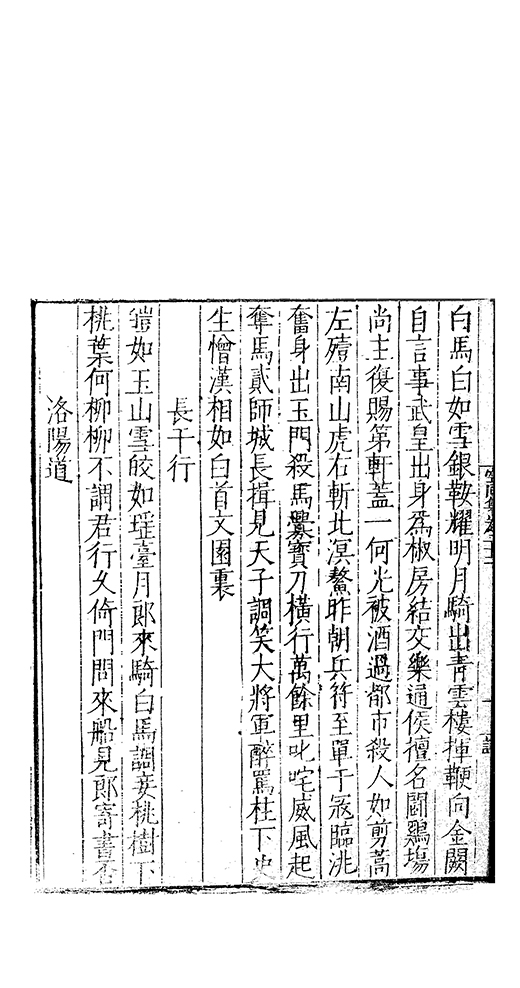 白馬白如雪銀鞍耀明月騎出青雲樓揮鞭向金闕
自言事武皇出身為椒房結交欒通侯擅名鬪鷄場
尚主復賜第軒蓋一何光被酒過都市殺人如剪蒿
左殪南山虎右斬北溟鰲昨朝兵符至單于冦臨洮
奮身出玉門殺馬釁寶刀橫行萬餘里叱咤威風起
奪馬貳師城長揖見天子調笑大將軍醉罵柱下史
生憎漢相如白首文園裏
長干行
皚如玉山雪皎如瑶臺月郎來騎白馬調妾桃樹下
桃葉何柳柳不謂君行久倚門問來船見郎寄書否
洛陽道